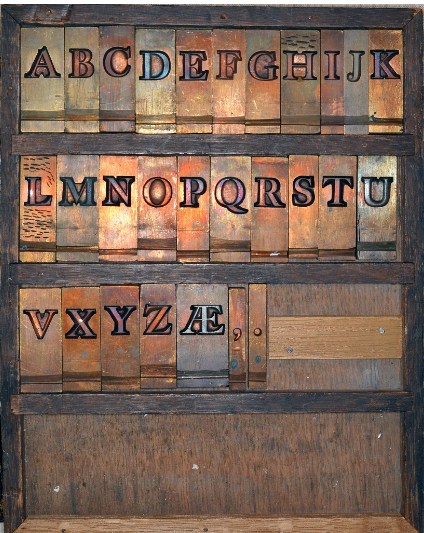 ABCDEFGHIJK
LMNOPQRSTU
VXYZÆ,.